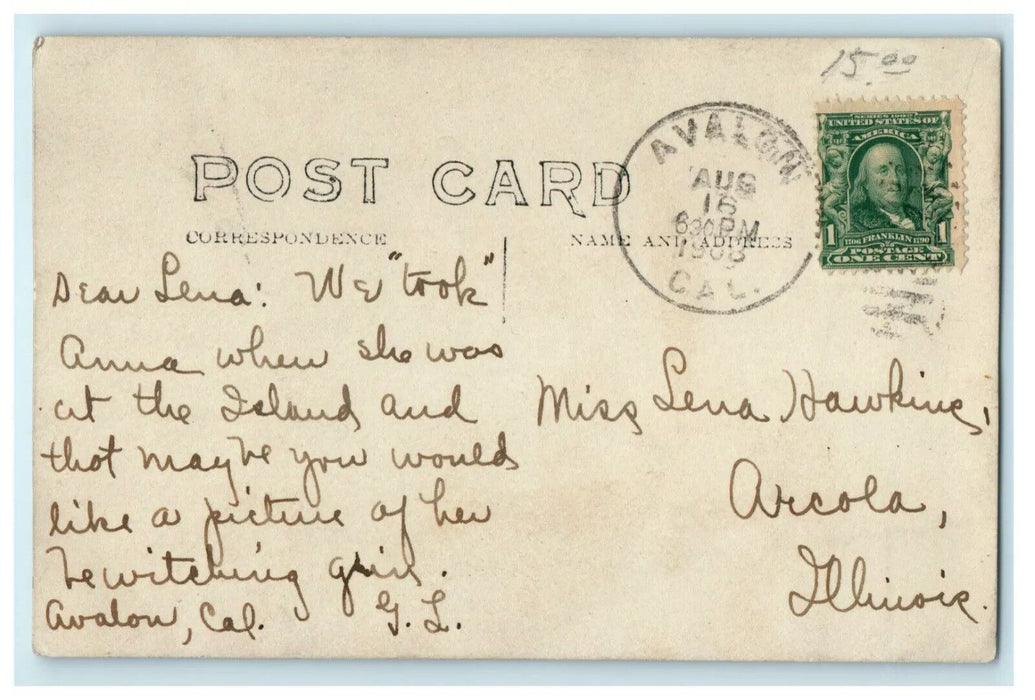 15.00
POST CARD
CORRESPONDENCE
NAME AND ADDRESS
AVALON
AUG
16
630 PM
CAL.
SERIES 1902
UNITED STATES OF
AMERICA
1 1706 FRANKLIN 1790 1
POSTAGE
ONE CENT
Dear Lena: We "took"
Anna when she was
at the Island and
that maybe you would
like a picture of her
bewitching grin.
Avalon, Cal. G. L.
Miss Lena Hawkins,
Arcola,
Illinois.